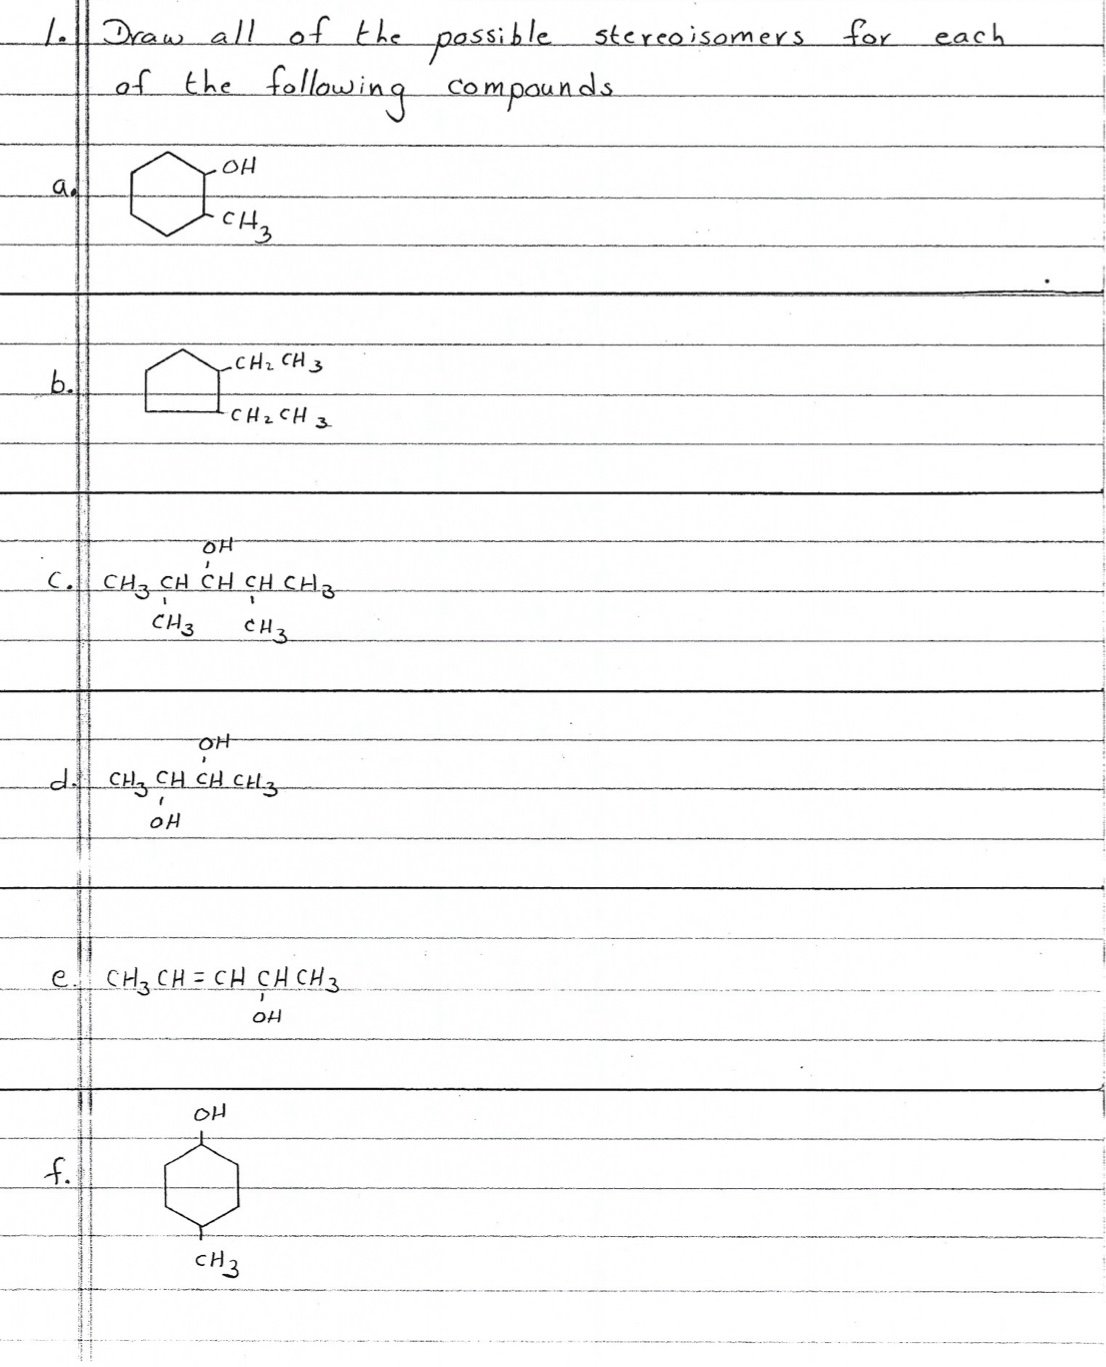 1. Draw all of the possible stereoisomers for each
of the following compounds
a. OH
CH3
b. CH2 CH3
CH2 CH3
OH
c. CH3 CH CH CH CH3
CH3 CH3
OH
d. CH3 CH CH CH3
OH
e. CH3 CH = CH CH CH3
OH
OH
f.
CH3